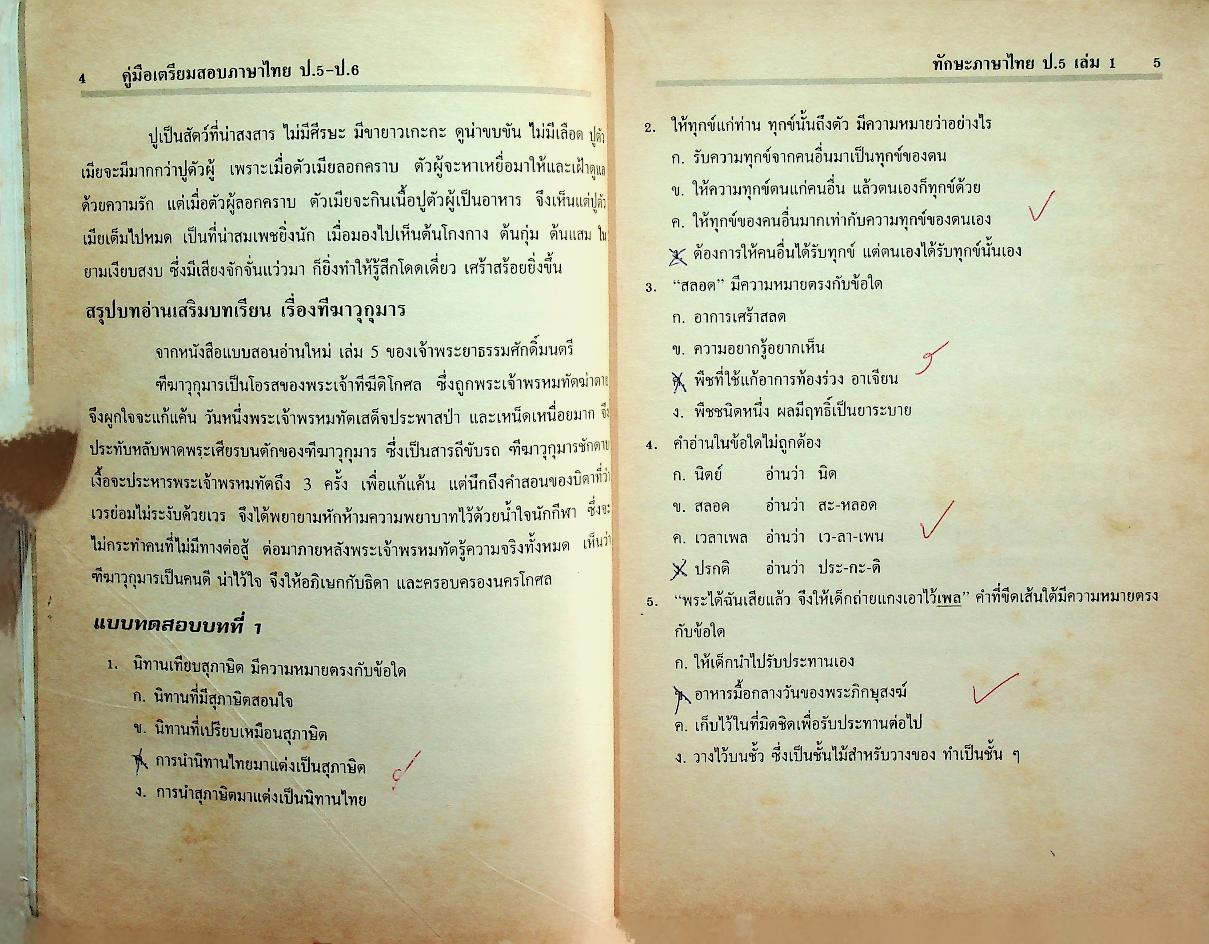 4 คู่มือเตรียมสอบภาษาไทย ป.5-ป.6
ปูเป็นสัตว์ที่น่าสงสาร ไม่มีศีรษะ มีขายาวเกะกะ ดูน่าขบขัน ไม่มีเลือด ปูตัว
เมียจะมีมากกว่าปูตัวผู้ เพราะเมื่อตัวเมียลอกคราบ ตัวผู้จะหาเหยื่อมาให้และเฝ้าดูแล
ด้วยความรัก แต่เมื่อตัวผู้ลอกคราบ ตัวเมียจะกินเนื้อปูตัวผู้เป็นอาหาร จึงเห็นแต่ปูตัว
เมียเต็มไปหมด เป็นที่น่าสมเพชยิ่งนัก เมื่อมองไปเห็นต้นโกงกาง ต้นกุ่ม ต้นแสม ใน
ยามเงียบสงบ ซึ่งมีเสียงจักจั่นแว่วมา ก็ยิ่งทำให้รู้สึกโดดเดี่ยว เศร้าสร้อยยิ่งขึ้น
สรุปบทอ่านเสริมบทเรียน เรื่องทีฆาวุกุมาร
จากหนังสือแบบสอนอ่านใหม่ เล่ม 5 ของเจ้าพระยาธรรมศักดิ์มนตรี
ทีฆาวุกุมารเป็นโอรสของพระเจ้าทีฆีติโกศล ซึ่งถูกพระเจ้าพรหมทัตฆ่าตาย
จึงผูกใจจะแก้แค้น วันหนึ่งพระเจ้าพรหมทัตเสด็จประพาสป่า และเหน็ดเหนื่อยมาก จึง
ประทับหลับพาดพระเศียรบนตักของทีฆาวุกุมาร ซึ่งเป็นสารถีขับรถ ทีฆาวุกุมารชักดาบ
เงื้อจะประหารพระเจ้าพรหมทัตถึง 3 ครั้ง เพื่อแก้แค้น แต่นึกถึงคำสอนของบิดาที่ว่า
เวรย่อมไม่ระงับด้วยเวร จึงได้พยายามหักห้ามความพยาบาทไว้ด้วยน้ำใจนักกีฬา ซึ่งจะ
ไม่กระทำคนที่ไม่มีทางต่อสู้ ต่อมาภายหลังพระเจ้าพรหมทัตรู้ความจริงทั้งหมด เห็นว่า
ทีฆาวุกุมารเป็นคนดี น่าไว้ใจ จึงให้อภิเษกกับธิดา และครอบครองนครโกศล
แบบทดสอบบทที่ 1
1. นิทานเทียบสุภาษิต มีความหมายตรงกับข้อใด
ก. นิทานที่มีสุภาษิตสอนใจ
ข. นิทานที่เปรียบเหมือนสุภาษิต
ค. การนำนิทานไทยมาแต่งเป็นสุภาษิต
ง. การนำสุภาษิตมาแต่งเป็นนิทานไทย
ทักษะภาษาไทย ป.5 เล่ม 1 5
2. ให้ทุกข์แก่ท่าน ทุกข์นั้นถึงตัว มีความหมายว่าอย่างไร
ก. รับความทุกข์จากคนอื่นมาเป็นทุกข์ของตน
ข. ให้ความทุกข์ตนแก่คนอื่น แล้วตนเองก็ทุกข์ด้วย
ค. ให้ทุกข์ของคนอื่นมากเท่ากับความทุกข์ของตนเอง
ง. ต้องการให้คนอื่นได้รับทุกข์ แต่ตนเองได้รับทุกข์นั้นเอง
3. “สลอด” มีความหมายตรงกับข้อใด
ก. อาการเศร้าสลด
ข. ความอยากรู้อยากเห็น
ค. พืชที่ใช้แก้อาการท้องร่วง อาเจียน
ง. พืชชนิดหนึ่ง ผลมีฤทธิ์เป็นยาระบาย
4. คำอ่านในข้อใดไม่ถูกต้อง
ก. นิตย์ อ่านว่า นิด
ข. สลอด อ่านว่า สะ-หลอด
ค. เวลาเพล อ่านว่า เว-ลา-เพน
ง. ปรกติ อ่านว่า ประ-กะ-ดิ
5. “พระได้ฉันเสียแล้ว จึงให้เด็กถ่ายแกงเอาไว้เพล” คำที่ขีดเส้นใต้มีความหมายตรง
กับข้อใด
ก. ให้เด็กนำไปรับประทานเอง
ข. อาหารมื้อกลางวันของพระภิกษุสงฆ์
ค. เก็บไว้ในที่มิดชิดเพื่อรับประทานต่อไป
ง. วางไว้บนชั้ว ซึ่งเป็นชั้นไม้สำหรับวางของ ทำเป็นชั้น ๆ